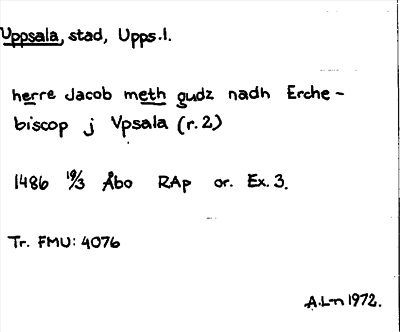 Uppsala, stad, Upps.l.
herre Jacob meth gudz nadh Erche-
biscop j Vpsala (r.2)
1486 19/3 Åbo RAp or. Ex. 3.
Tr. FMU: 4076
A.L-n 1972.